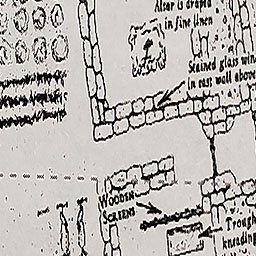 Altar is draped
in fine linen
Stained glass win
in east wall above
WOODEN
SCREENS
Trough
kneading